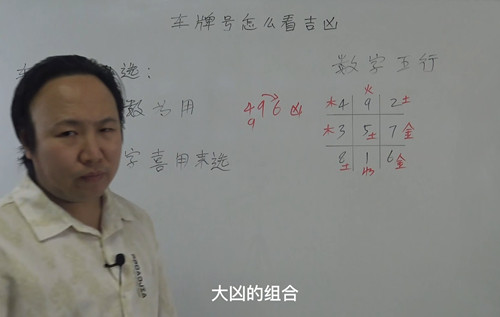 车牌号怎么看吉凶
车 选:
数字五行
数为用
496 凶
9
火
木 4 9 2 土
木 3 5 土 7 金
8 土 1 水 6 金
字喜用来选
BROADJSA
大凶的组合